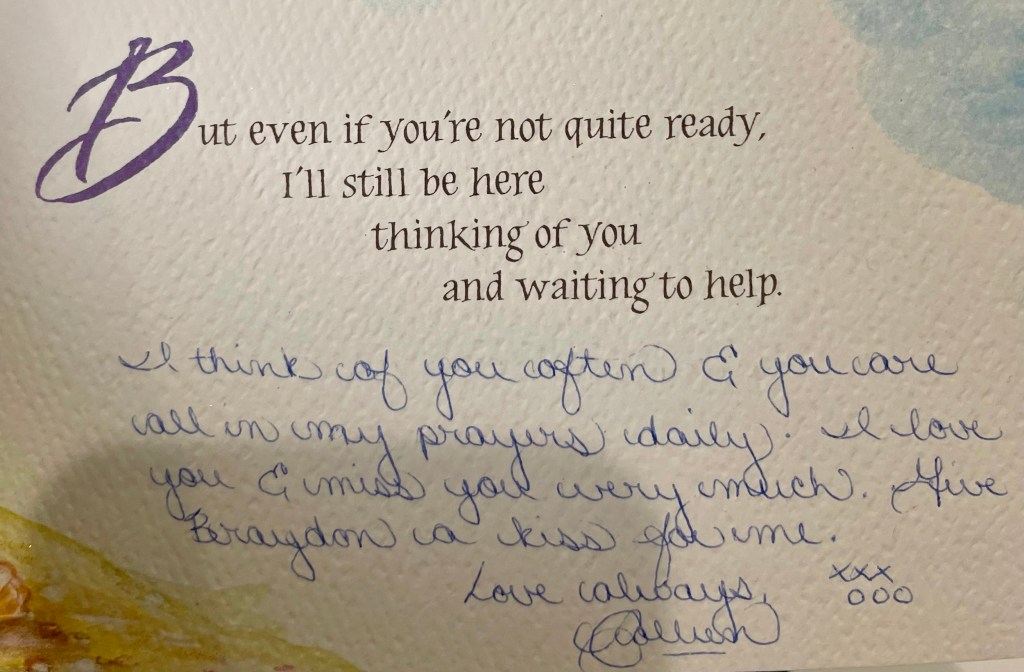 But even if you're not quite ready,
I'll still be here
thinking of you
and waiting to help.
I think of you often & you are
all in my prayers daily. I love
you & miss you very much. Give
Braydon a kiss for me.
Love always,
xxx
ooo